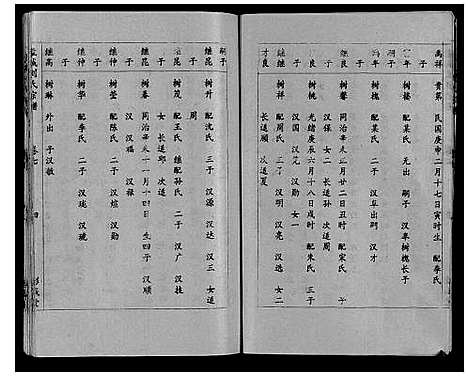 高祥 贵第 民国庚申二月十七日寅时生 配李氏
子
年子 树楼 配某氏 无出 嗣子 汉阜树槐长子
年子 树槐 配某氏 二子 汉阜出嗣 汉才
良子 树馨 同治辛未正月廿二日丑时 配宋氏 子
汉保 女二 长适孙 次适周
树桃 光绪庚辰六月十八日戌时 配朱氏 三子
汉国 汉览 汉勋 女一
继继 树祥 配周氏 三子 汉明 汉亮 汉选 女二
才良 长适顾 次适夏
嗣子
继昆 树升 配沈氏 三子 汉源 汉达 汉三 女适
周
继昆 树茂 配王氏 继配孙氏 二子 汉广 汉桂
子 女 长适邱 次适
继昆 树春 同治辛未十一月十四日 生四子 汉顺
子 汉 汉福 汉禄
继仲 树莹 配陈氏 二子 汉煊 汉勋
子
继仲 树华 配李氏 二子 汉珑 汉琥
子
继高 树琳 外出 子汉敏
盐城刘氏宗谱 卷七 四